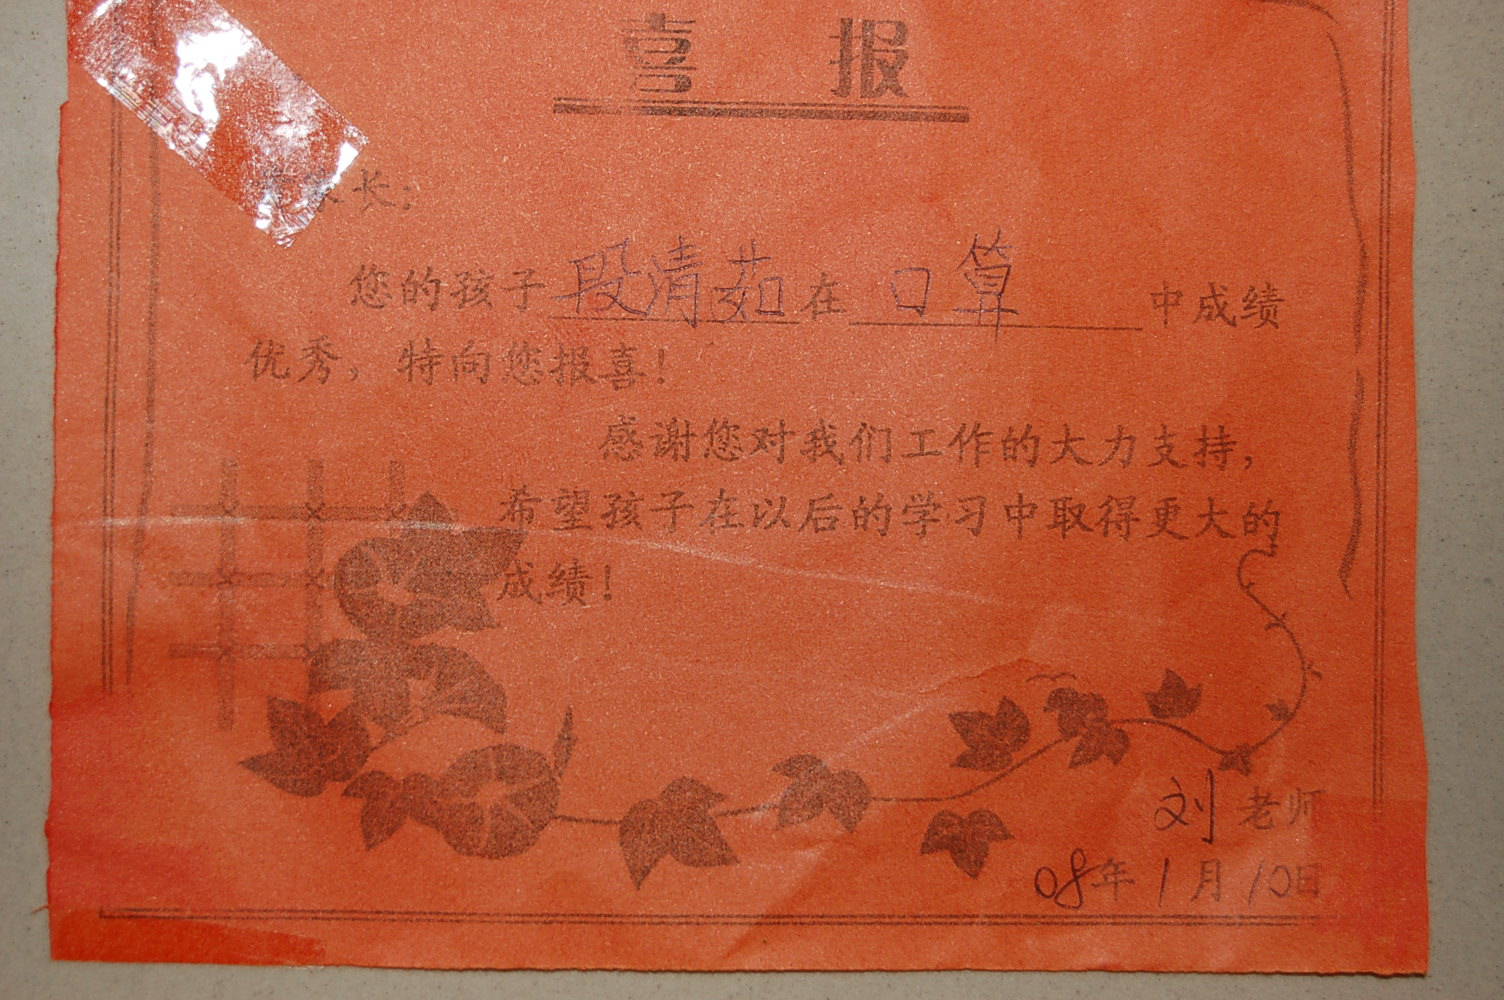 喜 报
家长：
您的孩子段清茹在口算中成绩
优秀，特向您报喜！
感谢您对我们工作的大力支持，
希望孩子在以后的学习中取得更大的
成绩！
刘老师
08年1月10日